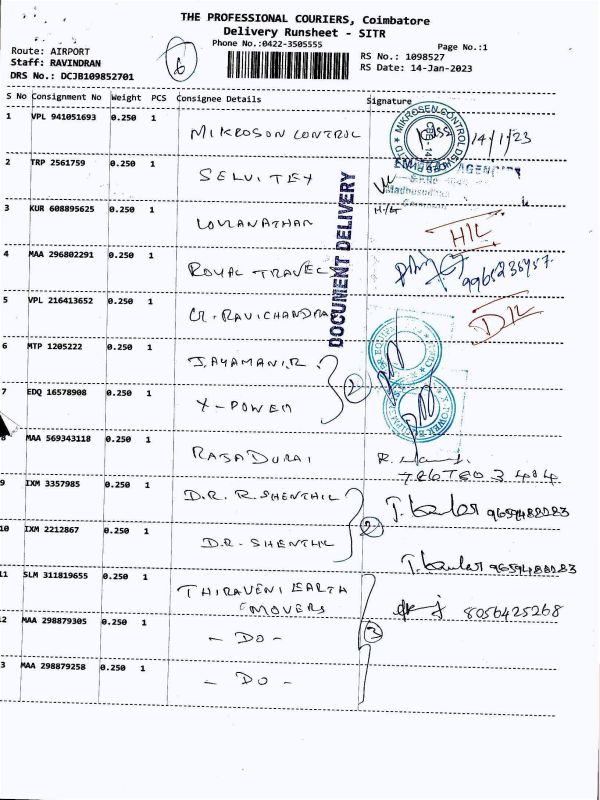 THE PROFESSIONAL COURIERS, Coimbatore
Delivery Runsheet - SITR
Phone No.:0422-3505555
Page No.:1
Route: AIRPORT
Staff: RAVINDRAN
DRS No.: DCJB109852701
6
RS No.: 1098527
RS Date: 14-Jan-2023
S No Consignment No Weight PCS Consignee Details Signature
1 VPL 941051693 0.250 1 MIKROSON CONTROL 14/1/23
2 TRP 2561759 0.250 1 SELVI TEX
3 KUR 608895625 0.250 1 LOGANATHAN H/L
4 MAA 296802291 0.250 1 ROYAL TRAVEL 9965235957
5 VPL 216413652 0.250 1 G. RAVICHANDRA D/L
DOCUMENT DELIVERY
6 MTP 1205222 0.250 1 JAYAMANI.R.
2
7 EDQ 16578908 0.250 1 X-POWER
8 MAA 569343118 0.250 1 RAJADURAI
9 IXM 3357985 0.250 1 D.R. R. SHENTHIL 9659488083
2
10 IXM 2212867 0.250 1 D.R- SHENTHIL 9659488083
11 SLM 311819655 0.250 1 THIRAVENI EARTH
MOVERS 8056425268
12 MAA 298879305 0.250 1 - DO -
3
13 MAA 298879258 0.250 1 - DO -